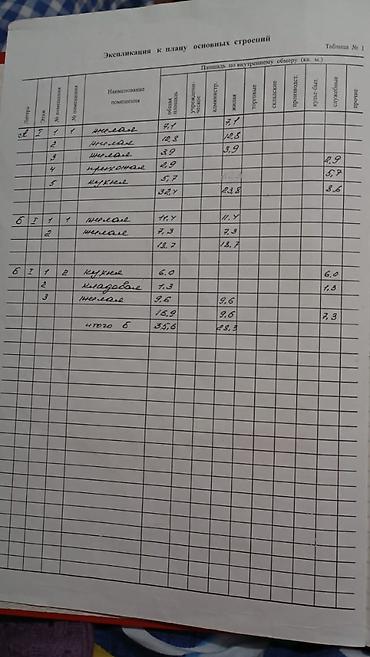 Экспликация к плану основных строений
Таблица № 1
Литера Этаж № помещения № помещения Наименование помещения Площадь по внутреннему обмеру (кв. м.)
общая площадь учрежден-ческое администр. жилая торговые складские производст. культ-быт. служебные прочие
А I 1 1 жилая 7,1 7,1
2 жилая 12,8 12,8
3 жилая 3,9 3,9
4 прихожая 2,9 2,9
5 кухня 5,7 5,7
32,4 23,8 8,6
Б I 1 1 жилая 11,4 11,4
2 жилая 7,3 7,3
18,7 18,7
Б I 1 2 кухня 6,0 6,0
2 кладовая 1,3 1,3
3 жилая 9,6 9,6
16,9 9,6 7,3
итого Б 35,6 28,3